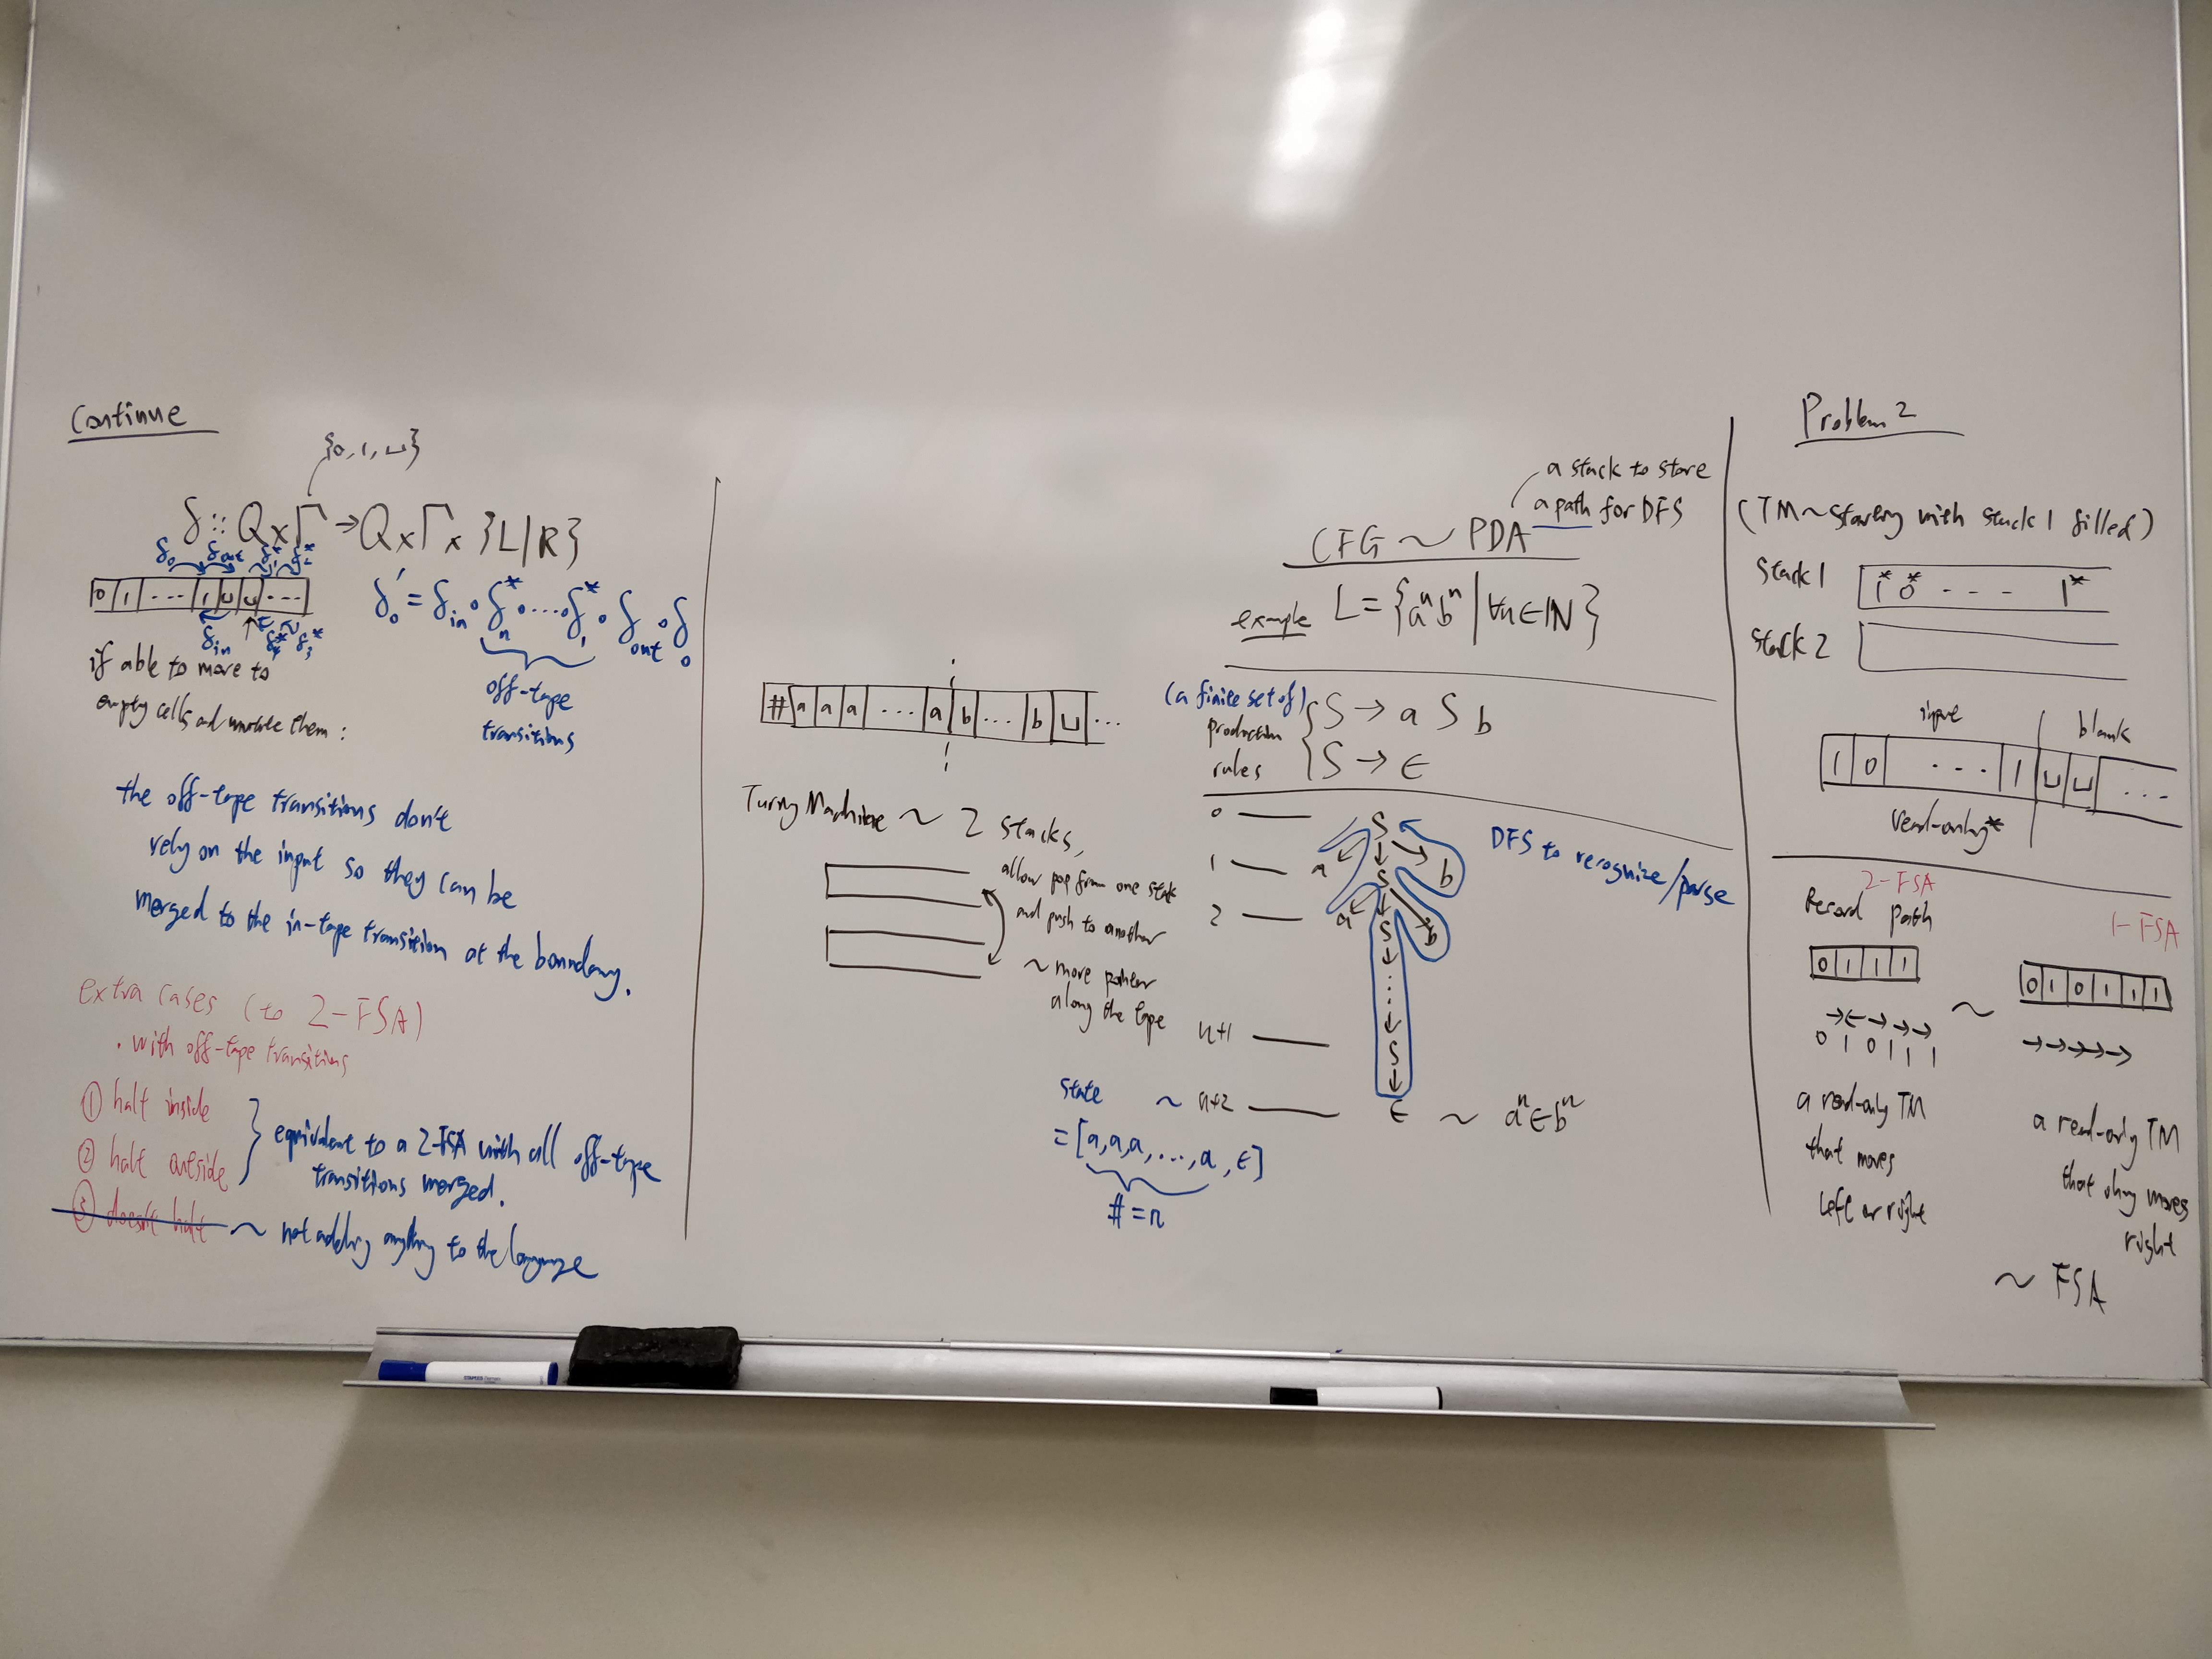 Continue
{0, 1, ⊔}
δ :: Q × Γ → Q × Γ × {L|R}
δ₀ δout δ₁* δ₂*
0 1 ... 1 ⊔ ⊔ ...
δin δ₃*
δ₀' = δin ∘ δn* ∘ ... ∘ δ₁* ∘ δout ∘ δ₀
off-tape
transitions
if able to move to
empty cells and mutate them :
the off-tape transitions don't
rely on the input so they can be
merged to the in-tape transition at the boundary.
extra cases (to 2-FSA)
. with off-tape transitions
① halt inside
② halt outside
③ doesn't halt
} equivalent to a 2-FSA with all off-tape
transitions merged.
~ not adding anything to the language
# a a a ... a b ... b ⊔ ...
Turing Machine ~ 2 stacks,
allow pop from one stack
and push to another
~ more pointer
along the tape
a stack to store
a path for DFS
CFG ~ PDA
example L = {aⁿbⁿ | ∀n∈ℕ}
(a finite set of)
production
rules
S → a S b
S → ε
0
1
2
n+1
~ n+2
S
a S b
a S b
⋮
S
ε ~ aⁿεbⁿ
DFS to recognize/parse
state
= [a,a,a,...,a,ε]
# = n
Problem 2
(TM ~ starting with stack 1 filled)
stack 1 1* 0* - - - 1*
stack 2
input blank
1 0 ... 1 ⊔ ⊔ ...
read-only*
2-FSA
Record path
0 1 1 1
→ ← → → →
0 1 0 1 1 1
a read-only TM
that moves
left or right
~
1-FSA
0 1 0 1 1 1
→→→→→
a read-only TM
that only moves
right
~ FSA